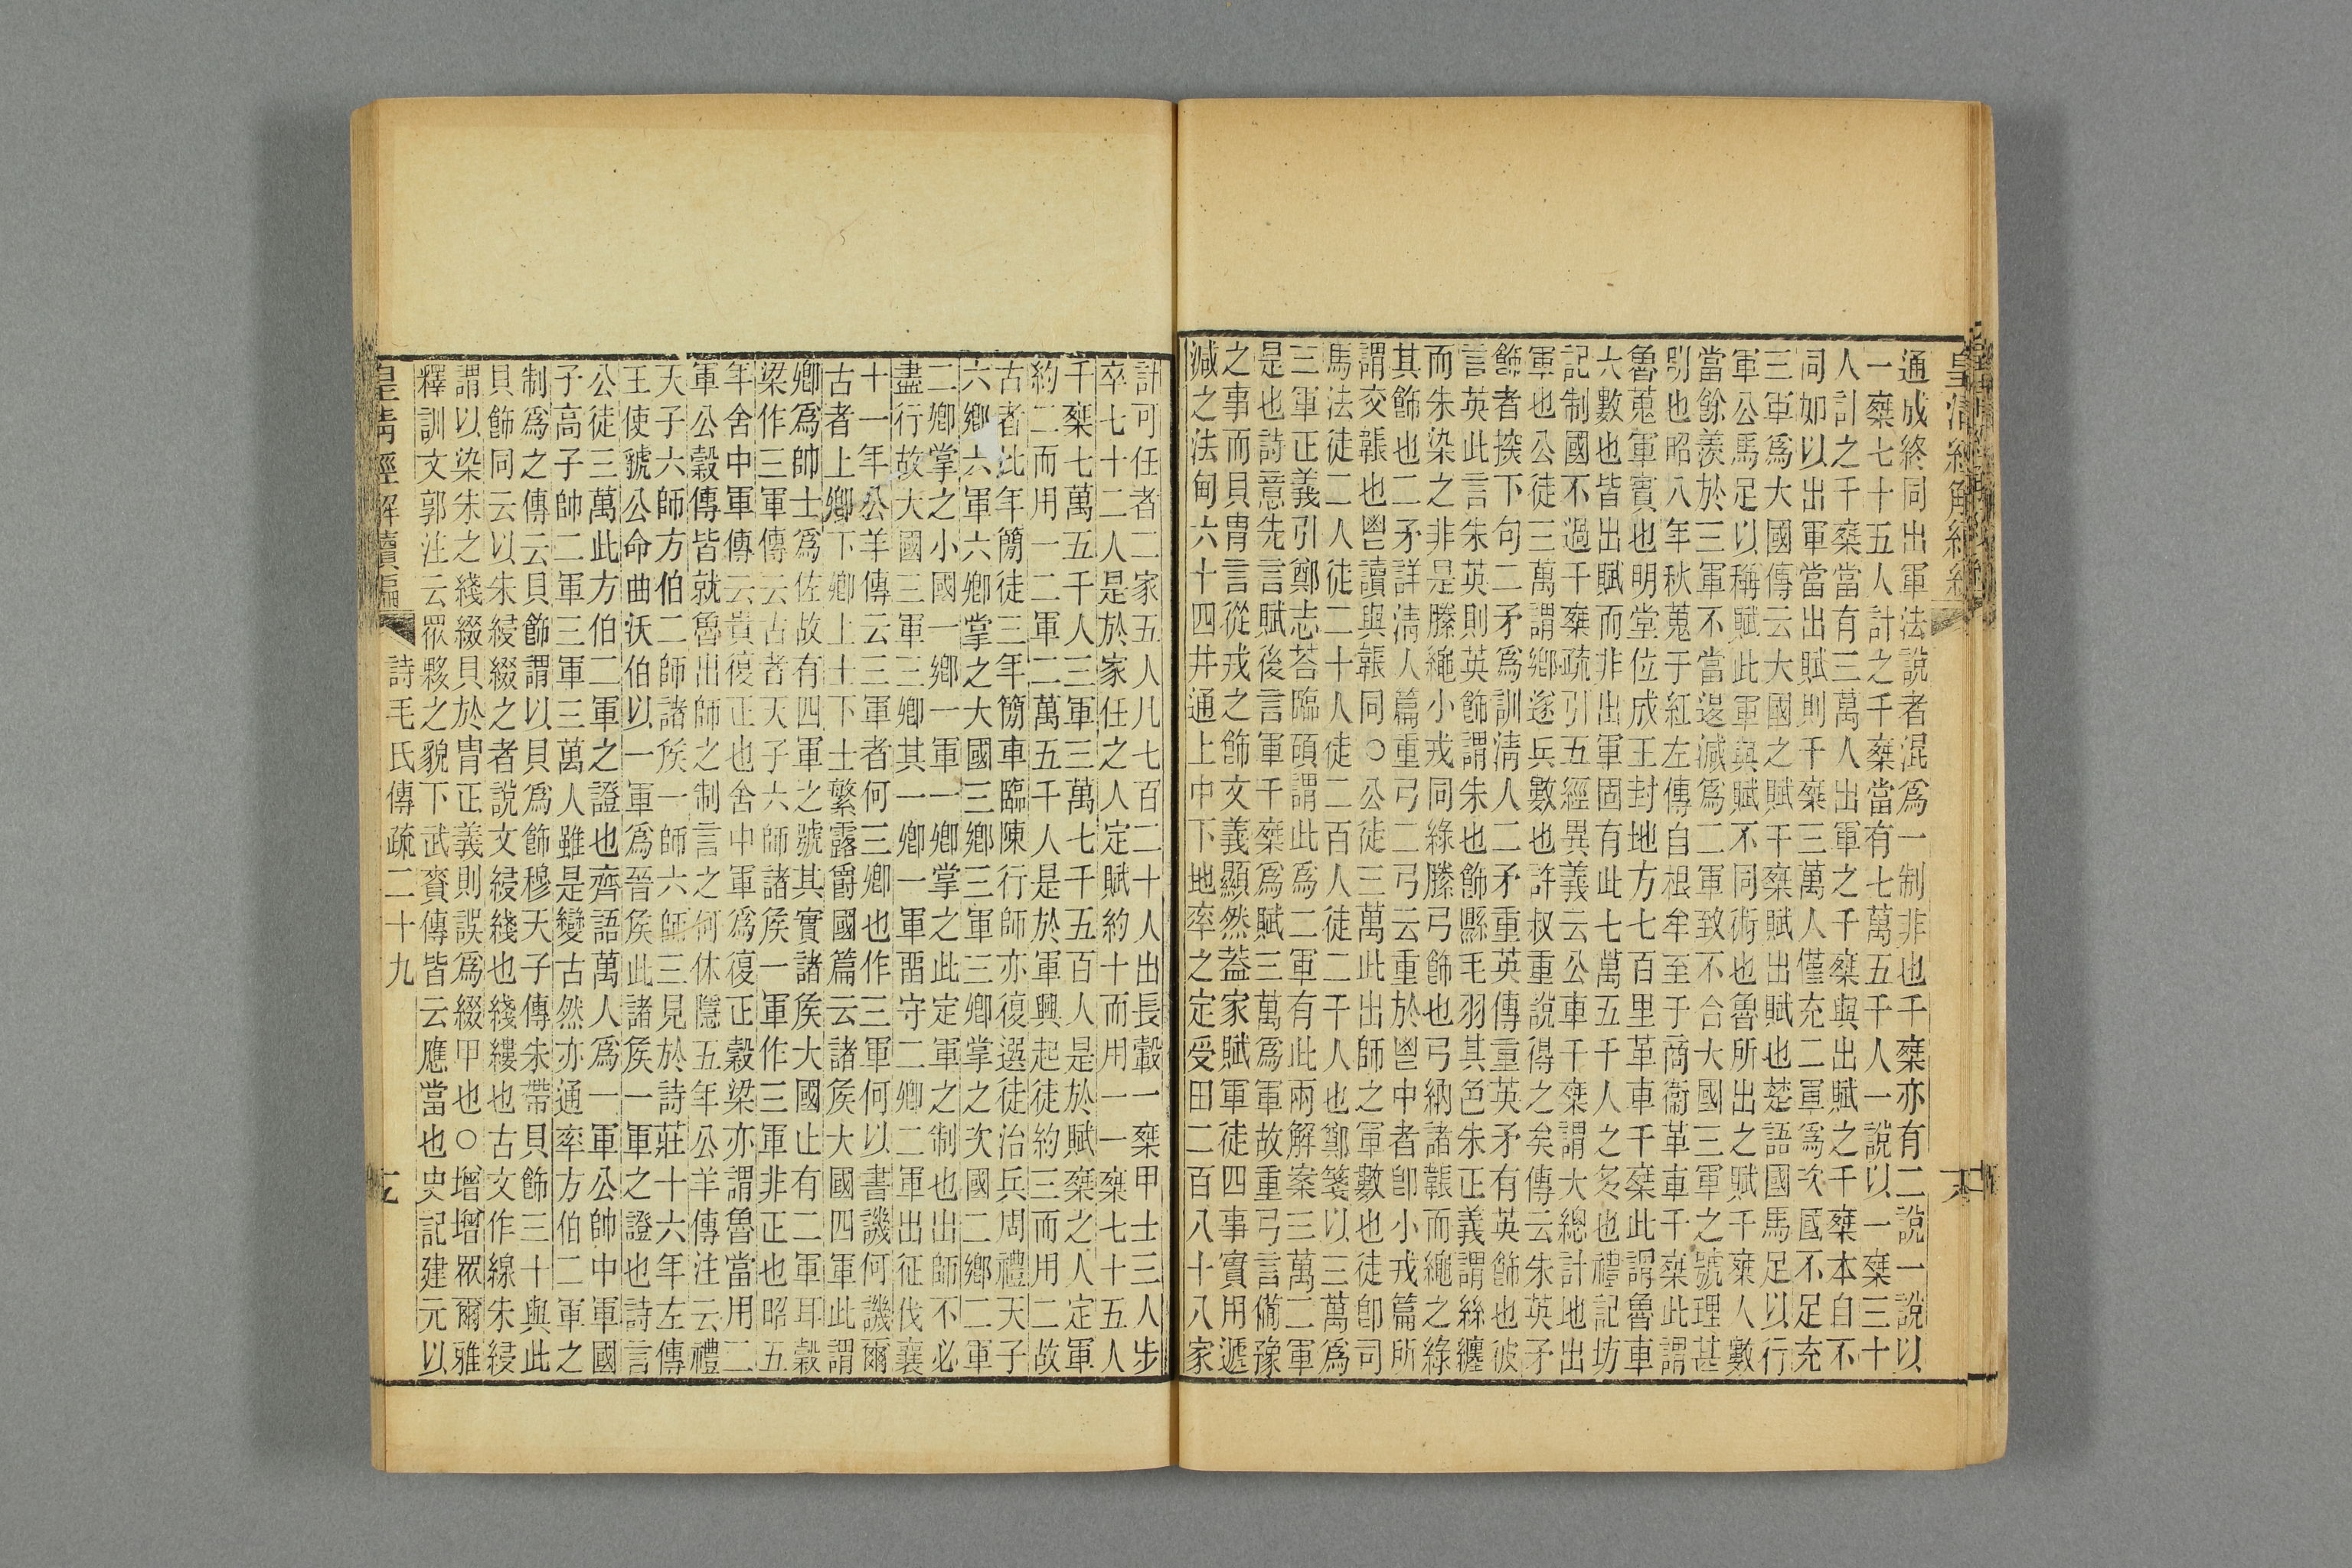 通成終同出軍法說者混爲一制非也千椉亦有二說一說以
一椉七十五人計之千椉當有七萬五千人一說以一椉三十
人計之千椉當有三萬人出軍之千椉與出賦之千椉本自不
同如以出軍當出賦則千椉三萬人僅充二軍爲次國不足充
三軍爲大國傳云大國之賦千椉賦出賦也楚語國馬足以行
軍公馬足以稱賦此軍與賦不同術也魯所出之賦千椉人數
當餘羨於三軍不當退減爲二軍致不合大國三軍之號理甚
明也昭八年秋蒐于紅左傳自根牟至于商衞革車千椉此謂
魯蒐軍實也明堂位成王封地方七百里革車千椉此謂魯車
六數也皆出賦而非出軍固有此七萬五千人之多也禮記坊
記制國不過千椉疏引五經異義云公車千椉謂大總計地出
軍也公徒三萬謂鄉遂兵數也許叔重說得之矣傳云朱英矛
飾者揬下句二矛爲訓淸人二矛重英傳重英矛有英飾也彼
言英此言朱英則英飾謂朱也飾縣毛羽其色朱正義謂絲纏
而朱染之非是縢繩小戎同綠縢弓飾也弓納諸韔而繩之綠
其飾也二矛詳淸人篇重弓二弓云重於鬯中者卽小戎篇所
謂交韔也鬯讀與韔同○公徒三萬此出師之軍數也徒卽司
馬法徒二人徒二十人徒二百人徒二千人也鄭箋以三萬爲
三軍正義引鄭志荅臨碩謂此爲二軍有此兩解案三萬二軍
是也詩意先言賦後言軍千椉爲賦三萬爲軍故重弓言僃豫
之事而貝冑言從戎之飾文義顯然葢家賦軍徒四事實用遞
減之法甸六十四井通上中下地率之定受田二百八十八家
計可任者二家五人凡七百二十人出長轂一椉甲士三人步
卒七十二人是於家任之人定賦約十而用一一椉七十五人
千椉七萬五千人三軍三萬七千五百人是於賦椉之人定軍
約二而用一二軍二萬五千人是於軍興起徒約三而用二故
古者比年簡徒三年簡車臨陳行師亦復選徒治兵周禮天子
六鄉六軍六鄉掌之大國三鄉三軍三鄉掌之次國二鄉二軍
二鄉掌之小國一鄉一軍一鄉掌之此定軍之制也出師不必
盡行故大國三軍三卿其一卿一軍畱守二卿二軍出征伐襄
十一年公羊傳云三軍者何三卿也作三軍何以書譏何譏爾
古者上卿下卿上士下士繁露爵國篇云諸矦大國四軍此謂
卿爲帥士爲佐故有四軍之號其實諸矦大國止有二軍耳穀
梁作三軍傳云古者天子六師諸矦一軍作三軍非正也昭五
年舍中軍傳云貴復正也舍中軍爲復正穀梁亦謂魯當用二
軍公穀傳皆就魯出師之制言之何休隱五年公羊傳注云禮
天子六師方伯二師諸矦一師六師三見於詩莊十六年左傳
王使虢公命曲沃伯以一軍爲晉矦此諸矦一軍之證也詩言
公徒三萬此方伯二軍之證也齊語萬人爲一軍公帥中軍國
子高子帥二軍三軍三萬人雖是變古然亦通率方伯二軍之
制爲之傳云貝飾謂以貝爲飾穆天子傳朱帶貝飾三十與此
貝飾同云以朱綅綴之者說文綅綫也綫縷也古文作線朱綅
謂以染朱之綫綴貝於冑正義則誤爲綴甲也○增增眾爾雅
釋訓文郭注云眾夥之貌下武賚傳皆云應當也史記建元以
皇淸經解續編 詩毛氏傳疏二十九